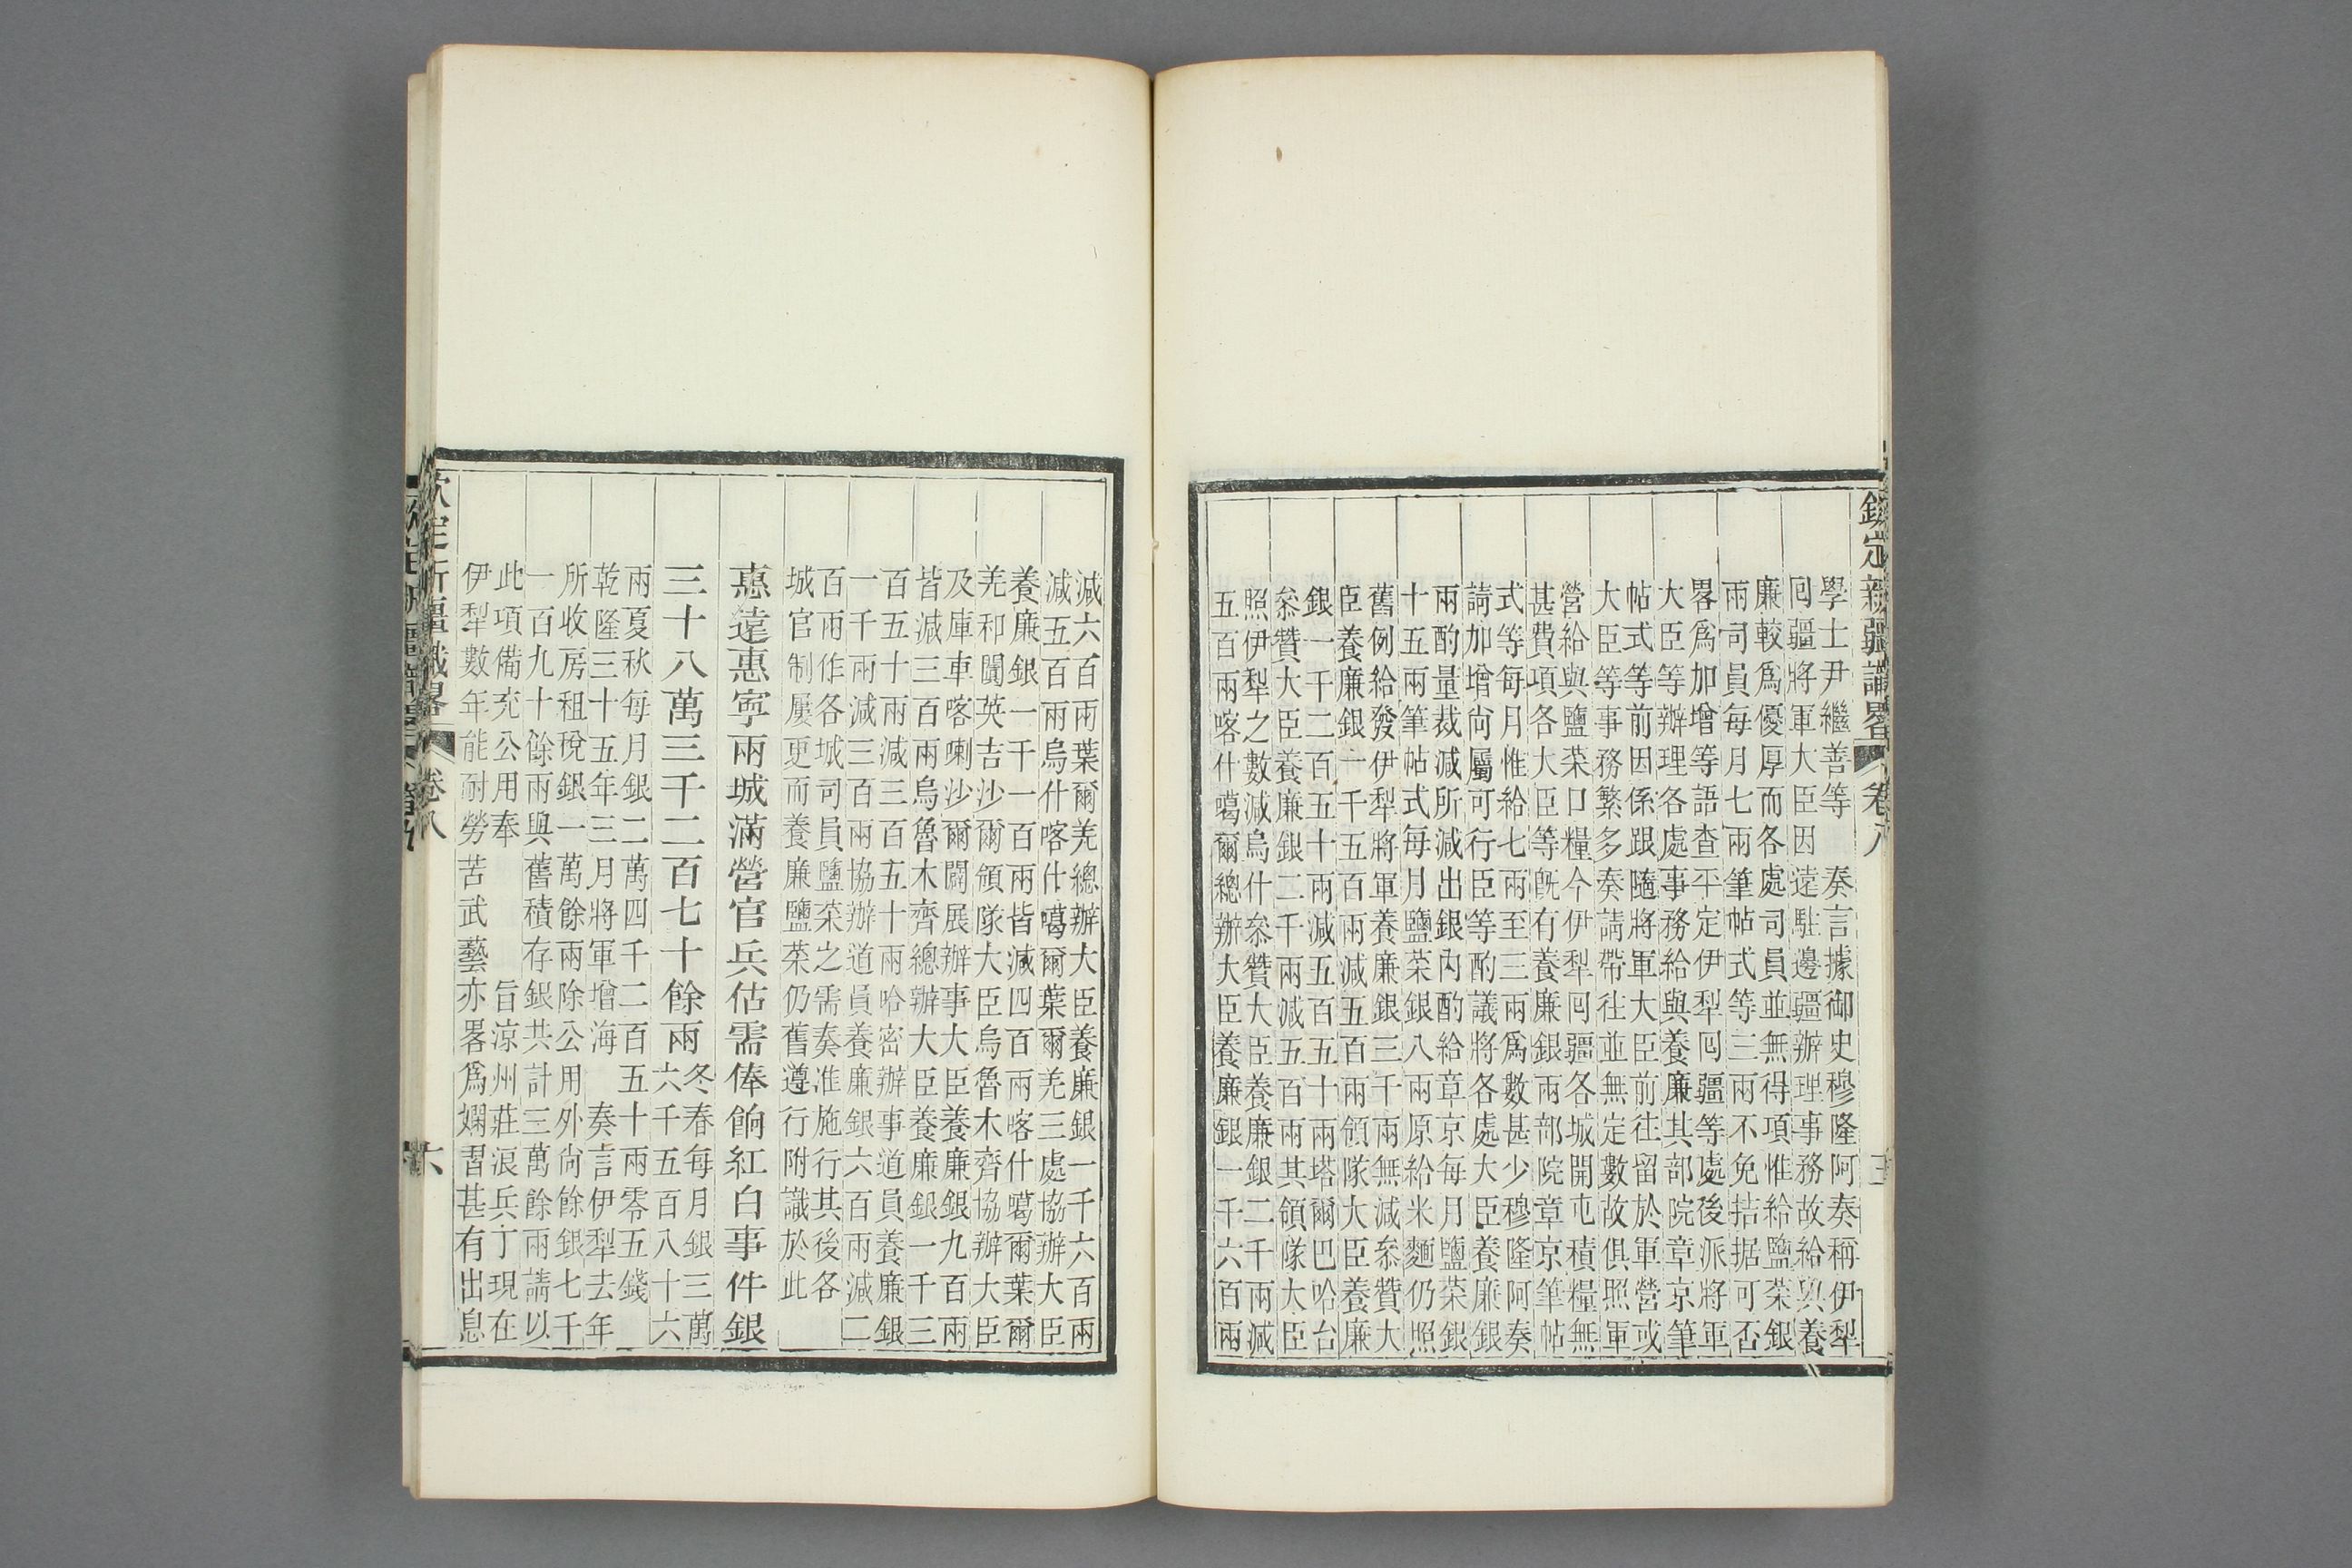 欽定新疆識畧 卷八
學士尹繼善等 奏言據御史穆隆阿奏稱伊犁
囘疆將軍大臣因 遠駐邊疆辦理事務故給與養
廉較爲優厚而各處司員並無得項惟給鹽菜銀
兩司員每月七兩筆帖式等三兩不免拮据可否
畧爲加增等語查平定伊犁囘疆等處後派將軍
大臣等辦理各處事務給與養廉其部院章京筆
帖式等前因係跟隨將軍大臣前往留於軍營或
大臣等事務繁多奏請帶往並無定數故俱照軍
營給與鹽菜口糧今伊犁囘疆各城開屯積糧無
甚費項各大臣等旣有養廉銀兩部院章京筆帖
式等每月惟給七兩至三兩爲數甚少穆隆阿奏
請加增尙屬可行臣等酌議將各處大臣養廉銀
兩酌量裁減所減出銀內酌給章京每月鹽菜銀
十五兩筆帖式每月鹽菜銀八兩原給米麵仍照
舊例給發伊犁將軍養廉銀三千兩無減叅贊大
臣養廉銀一千五百兩減五百兩領隊大臣養廉
銀一千二百五十兩減五百五十兩塔爾巴哈台
叅贊大臣養廉銀二千兩減五百兩其領隊大臣
照伊犁之數減烏什叅贊大臣養廉銀二千兩減
五百兩喀什噶爾總辦大臣養廉銀一千六百兩
減六百兩葉爾羌總辦大臣養廉銀一千六百兩
減五百兩烏什喀什噶爾葉爾羌三處協辦大臣
養廉銀一千一百兩皆減四百兩喀什噶爾葉爾
羌和闐英吉沙爾領隊大臣烏魯木齊協辦大臣
及庫車喀喇沙爾闢展辦事大臣養廉銀九百兩
皆減三百兩烏魯木齊總辦大臣養廉銀一千三
百五十兩減三百五十兩哈密辦事道員養廉銀
一千兩減三百兩協辦道員養廉銀六百兩減二
百兩作各城司員鹽菜之需奏准施行其後各
城官制屢更而養廉鹽菜仍舊遵行附識於此
惠遠惠寧兩城滿營官兵估需俸餉紅白事件銀
三十八萬三千二百七十餘兩
冬春每月銀三萬
六千五百八十六
兩夏秋每月銀二萬四千二百五十兩零五錢
乾隆三十五年三月將軍增海 奏言伊犁去年
所收房租稅銀一萬餘兩除公用外尙餘銀七千
一百九十餘兩與舊積存銀共計三萬餘兩請以
此項備充公用奉 旨涼州莊浪兵丁現在
伊犁數年能耐勞苦武藝亦畧爲嫻習甚有出息
欽定新疆識畧 卷八 六